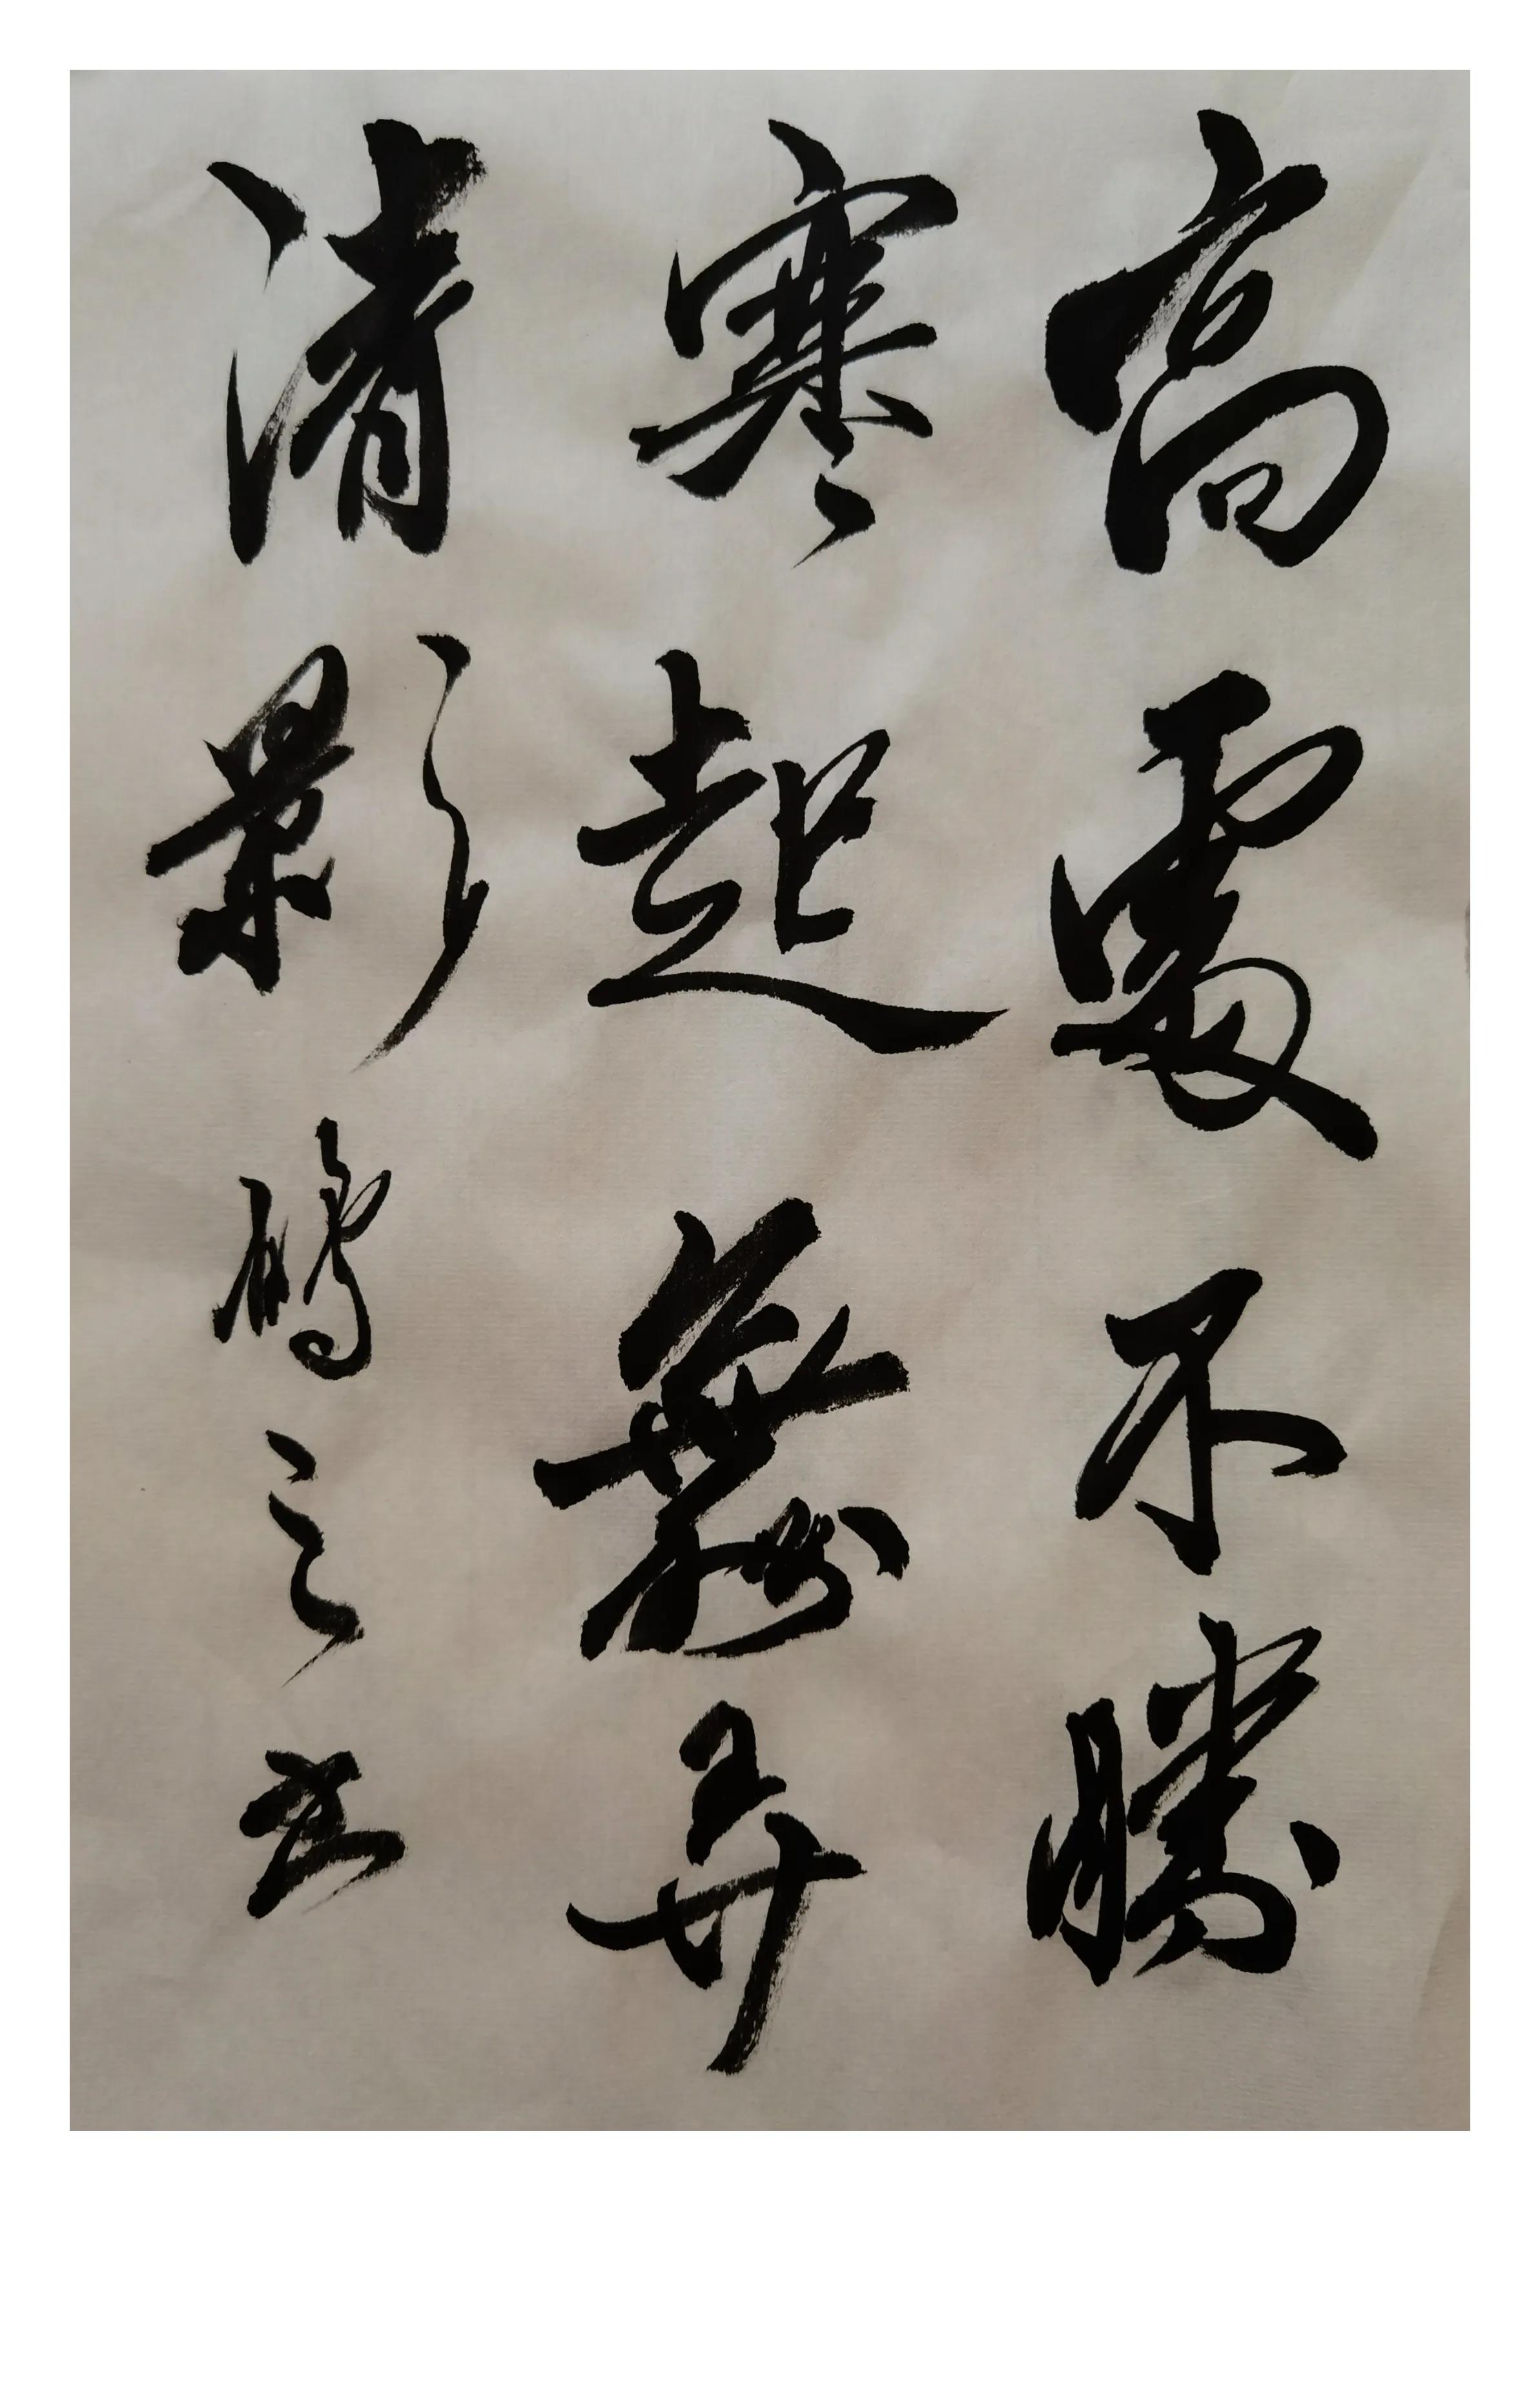 高處不勝
寒起舞弄
清影鵬之書